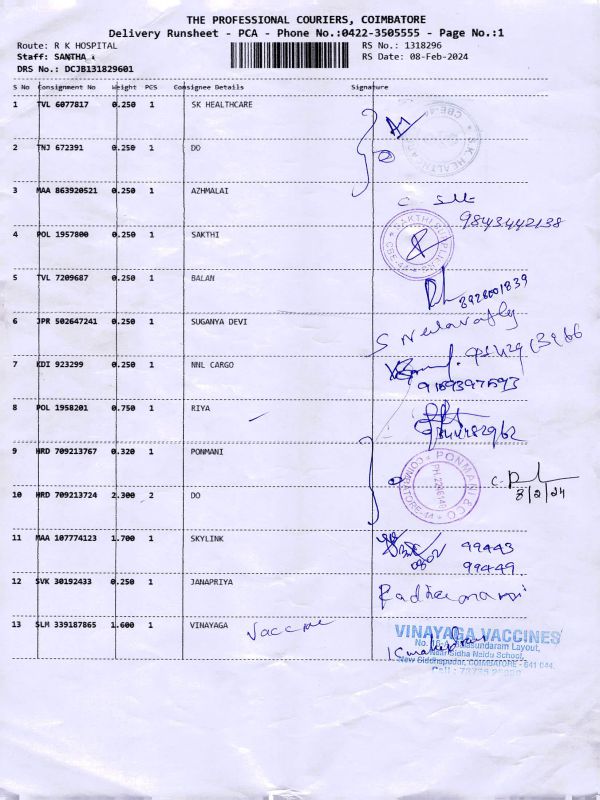 THE PROFESSIONAL COURIERS, COIMBATORE
Delivery Runsheet - PCA - Phone No.:0422-3505555 - Page No.:1
Route: R K HOSPITAL RS No.: 1318296
Staff: SANTHA RS Date: 08-Feb-2024
DRS No.: DCJB131829601
S No Consignment No Weight PCS Consignee Details Signature
1 TVL 6077817 0.250 1 SK HEALTHCARE
2 TNJ 672391 0.250 1 DO
3 MAA 863920521 0.250 1 AZHMALAI
9843442138
4 POL 1957800 0.250 1 SAKTHI
5 TVL 7209687 0.250 1 BALAN
6 JPR 502647241 0.250 1 SUGANYA DEVI
7 KDI 923299 0.250 1 NNL CARGO
8 POL 1958201 0.750 1 RIYA
9 HRD 709213767 0.320 1 PONMANI
PONMANI & CO
COIMBATORE-44
10 HRD 709213724 2.300 2 DO
8/2/24
11 MAA 107774123 1.700 1 SKYLINK
99443
99449
12 SVK 30192433 0.250 1 JANAPRIYA
Radheemani
13 SLM 339187865 1.600 1 VINAYAGA Vaccine
VINAYAGA VACCINES
Near Sidha Naidu School,
New Siddhapudur, COIMBATORE - 641 044.